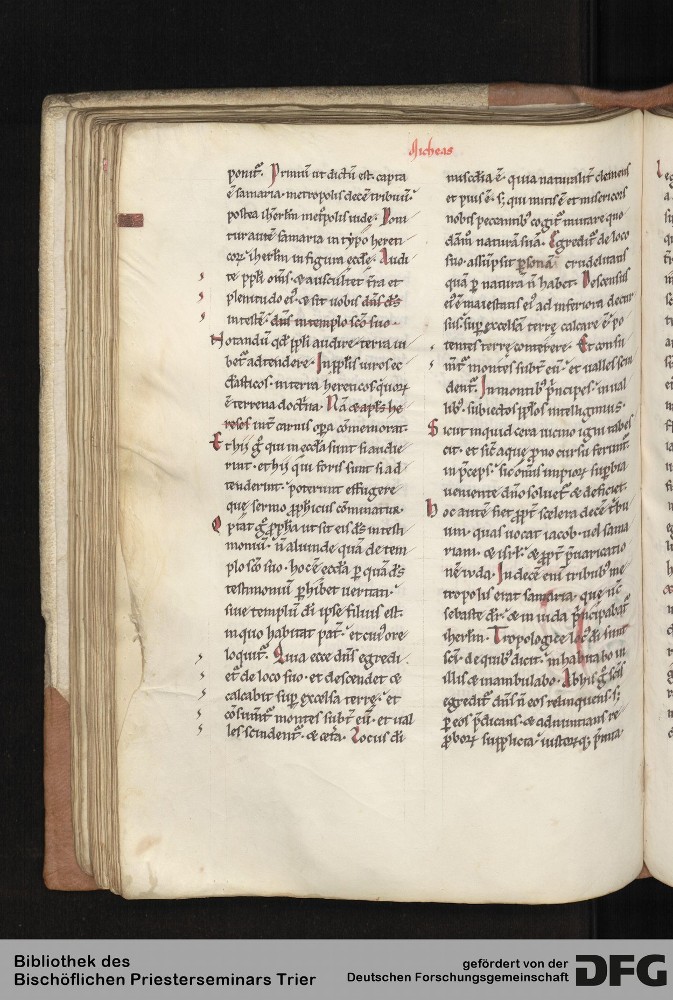 Micheas
ponit᷑. Primū ut dictū est. capta
ē samaria. metropolis decē tribuū.
postea ihrlm metropolis iude. Poni
tur autē samaria in typo hereti
cor᷑. ihrlm in figura eccłe. Audi
te ppłi om̄s. & auscultet t̄ra et
plenitudo ei᷒. & sit uobis dn̄s ds̄
in testē. dn̄s in templo sc̄o suo.
Notandū qd̄ ppłi audire. terra iu
bet᷑ adtendere. In pp̄lis uiros ec
cłasticos. in terra hereticos quor᷑
ē terrena doct̄na. Nā & apl̄s he
reses int̄ carnis op̄a cōmemorat.
Et hij g̊ qui in eccła sunt si audie
rint. et hij qui foris sunt si ad
tenderint. poterunt effugere
que sermo ꝓph̄icus cōminatur.
ptat᷑ g̊ ꝓph̄a ut sit eis ds̄ in testi
moniū. n̄ aliunde quā de tem
plo sc̄o suo. hoc ē eccła ꝑ quā ds̄
testimoniū ꝑhibet ueritati.
siue templū di ipse filius est.
in quo habitat pat᷑. et cui᷒ ore
loquit᷑. Quia ecce dn̄s egredi
et᷑ de loco suo. et descendet &
calcabit sup̄ excelsa terrę. et
cōsum̄t᷑ montes subt᷑ eū. et ual
les scindent᷑. & cet̄a. Locus di
miscďia ē. quia naturalit̄ clemens
et pius ē. s; qui mitis ē et misericors
nobis peccantib᷒ cogit᷑ mutare quo
dāmͦ naturā suā. Egredit᷑ de loco
suo. assūpsit ꝑsonā crudelitatis
quā ꝑ naturā n̄ habet. Descensus
ei᷒ ē maiestatis ei᷒ ad inferiora decur
sus. sup̄ excelsa terrę calcare ē po
tentes terrę conterere. Et consu
m̄t᷑ montes subt᷑ eū. et ualles scin
dent᷑. In montib᷒ p̄ncipes. in ual
lib᷒ subiectos pp̄los intelligimus.
Sicut inquid cera uicino igni tabes
cit. et sic̄ aque ꝑ no cursu ferunt᷑
in p̄ceps. sic om̄is impior᷑ supbia
ueniente dn̄o soluet᷑ & deficiet.
Hoc autē fiet ꝓpt̄ scelera decē t᷑bu
um. quas uocat iacob. uel sama
riam. & isrł. & ꝓpt̄ p̄uaricatio
nē iuda. In decē eni tribub᷒ me
tropolis erat samaria. que nc̄
sebaste dr̄. & in iuda p̄ncipabat᷑
ihrlm. Tropologice loc᷒ di sunt
sc̄i. de quib᷒ dicit. inhabitabo in
illis & inambulabo. Ab his g̊ sc̄is
egredit᷑ dn̄s n̄ eos relinquens. s;
ꝑ eos p̄dicans. & adnuntians re
ꝓbor᷑ supplicia. iustorꝗ; p̄mia.
Bibliothek des
Bischöflichen Priesterseminars Trier
gefördert von der
Deutschen Forschungsgemeinschaft
DFG